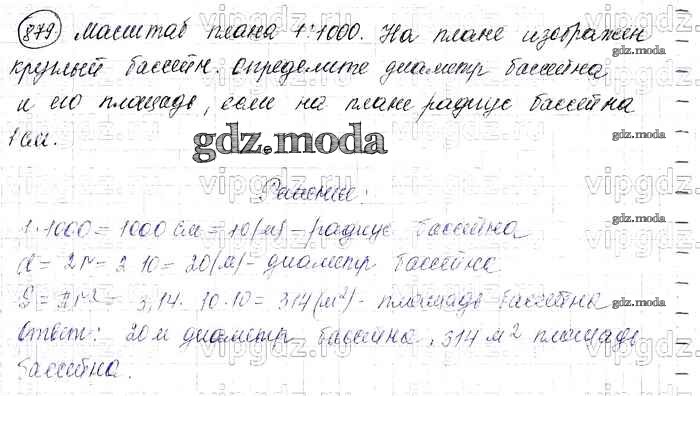 879. Масштаб плана 1:1000. На плане изображен
gdz.moda
круглый бассейн. Определите диаметр бассейна
и его площадь, если на плане радиус бассейна
gdz.moda
1 см.
gdz.moda
Решение:
gdz.moda
1·1000 = 1000 см = 10(м) – радиус бассейна
d = 2r = 2·10 = 20(м) – диаметр бассейна
S = πr² = 3,14·10·10 = 314(м²) – площадь бассейна
gdz.moda
Ответ: 20 м диаметр бассейна, 314 м² площадь
бассейна.